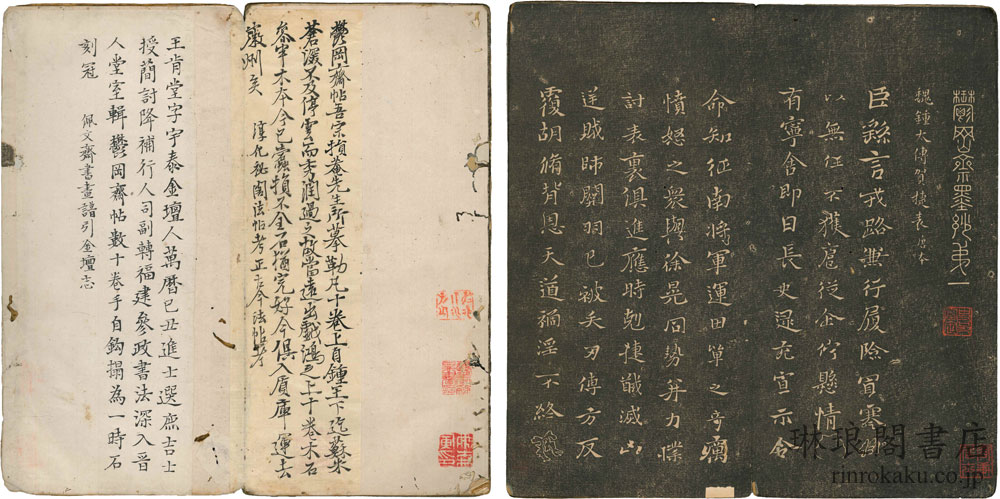 鬱岡齋墨妙第一
魏鍾大傅賀捷表唐本
臣繇言戎路無行履險冒寒臣
以無任不獲扈從企佇懸情
有寧舍即日長史逯充宣示令
命知征南將軍運田單之奇厲
憤怒之衆與徐晃同勢并力撲
討表裏俱進應時剋捷馘滅凶
逆賊帥關羽已被矢刃傅方反
覆胡脩背恩天道禍淫不終
鬱岡齋帖吾宗損菴先生所摹勒凡十卷上自鍾王下迄蘇米
蒼深不及停雲而秀潤過之故當遠出戲鴻之上十卷木石
參半木本今已蠹損不全石猶完好今俱入質庫運去
廬州矣
淳化秘閣法帖考正
王肯堂字宇泰金壇人萬曆己丑進士選庶吉士
授簡討降補行人司副轉福建參政書法深入晉
人堂室輯欝岡齋帖數十卷手自鈎搨為一時石
刻冠 佩文齋書畫譜引金壇志
琳琅閣書店
rinrokaku.co.jp